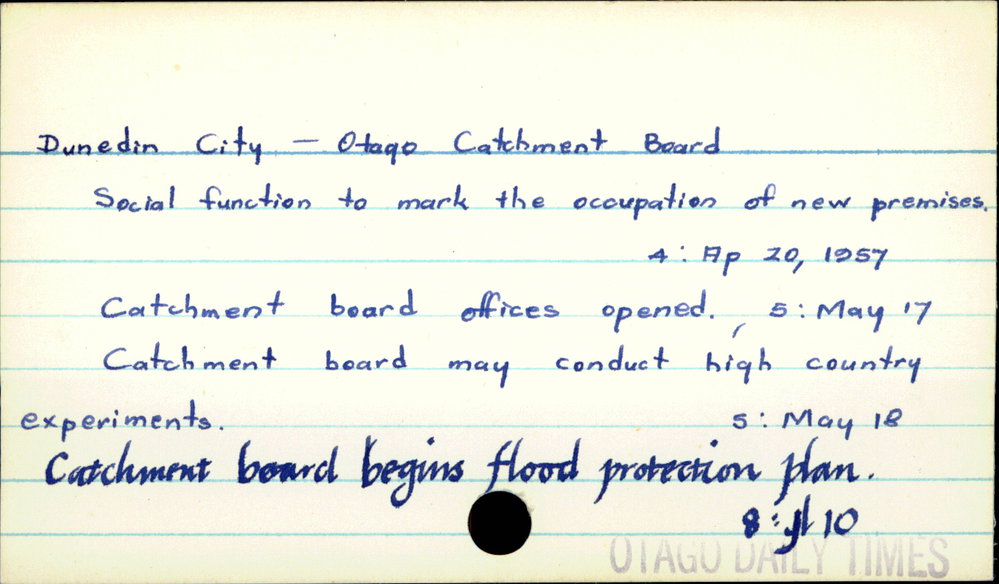 Dunedin City — Otago Catchment Board
Social function to mark the occupation of new premises.
4 : Ap 20, 1957
Catchment board offices opened. 5 : May 17
Catchment board may conduct high country
experiments. 5 : May 18
Catchment board begins flood protection plan.
8 : Jl 10
OTAGO DAILY TIMES